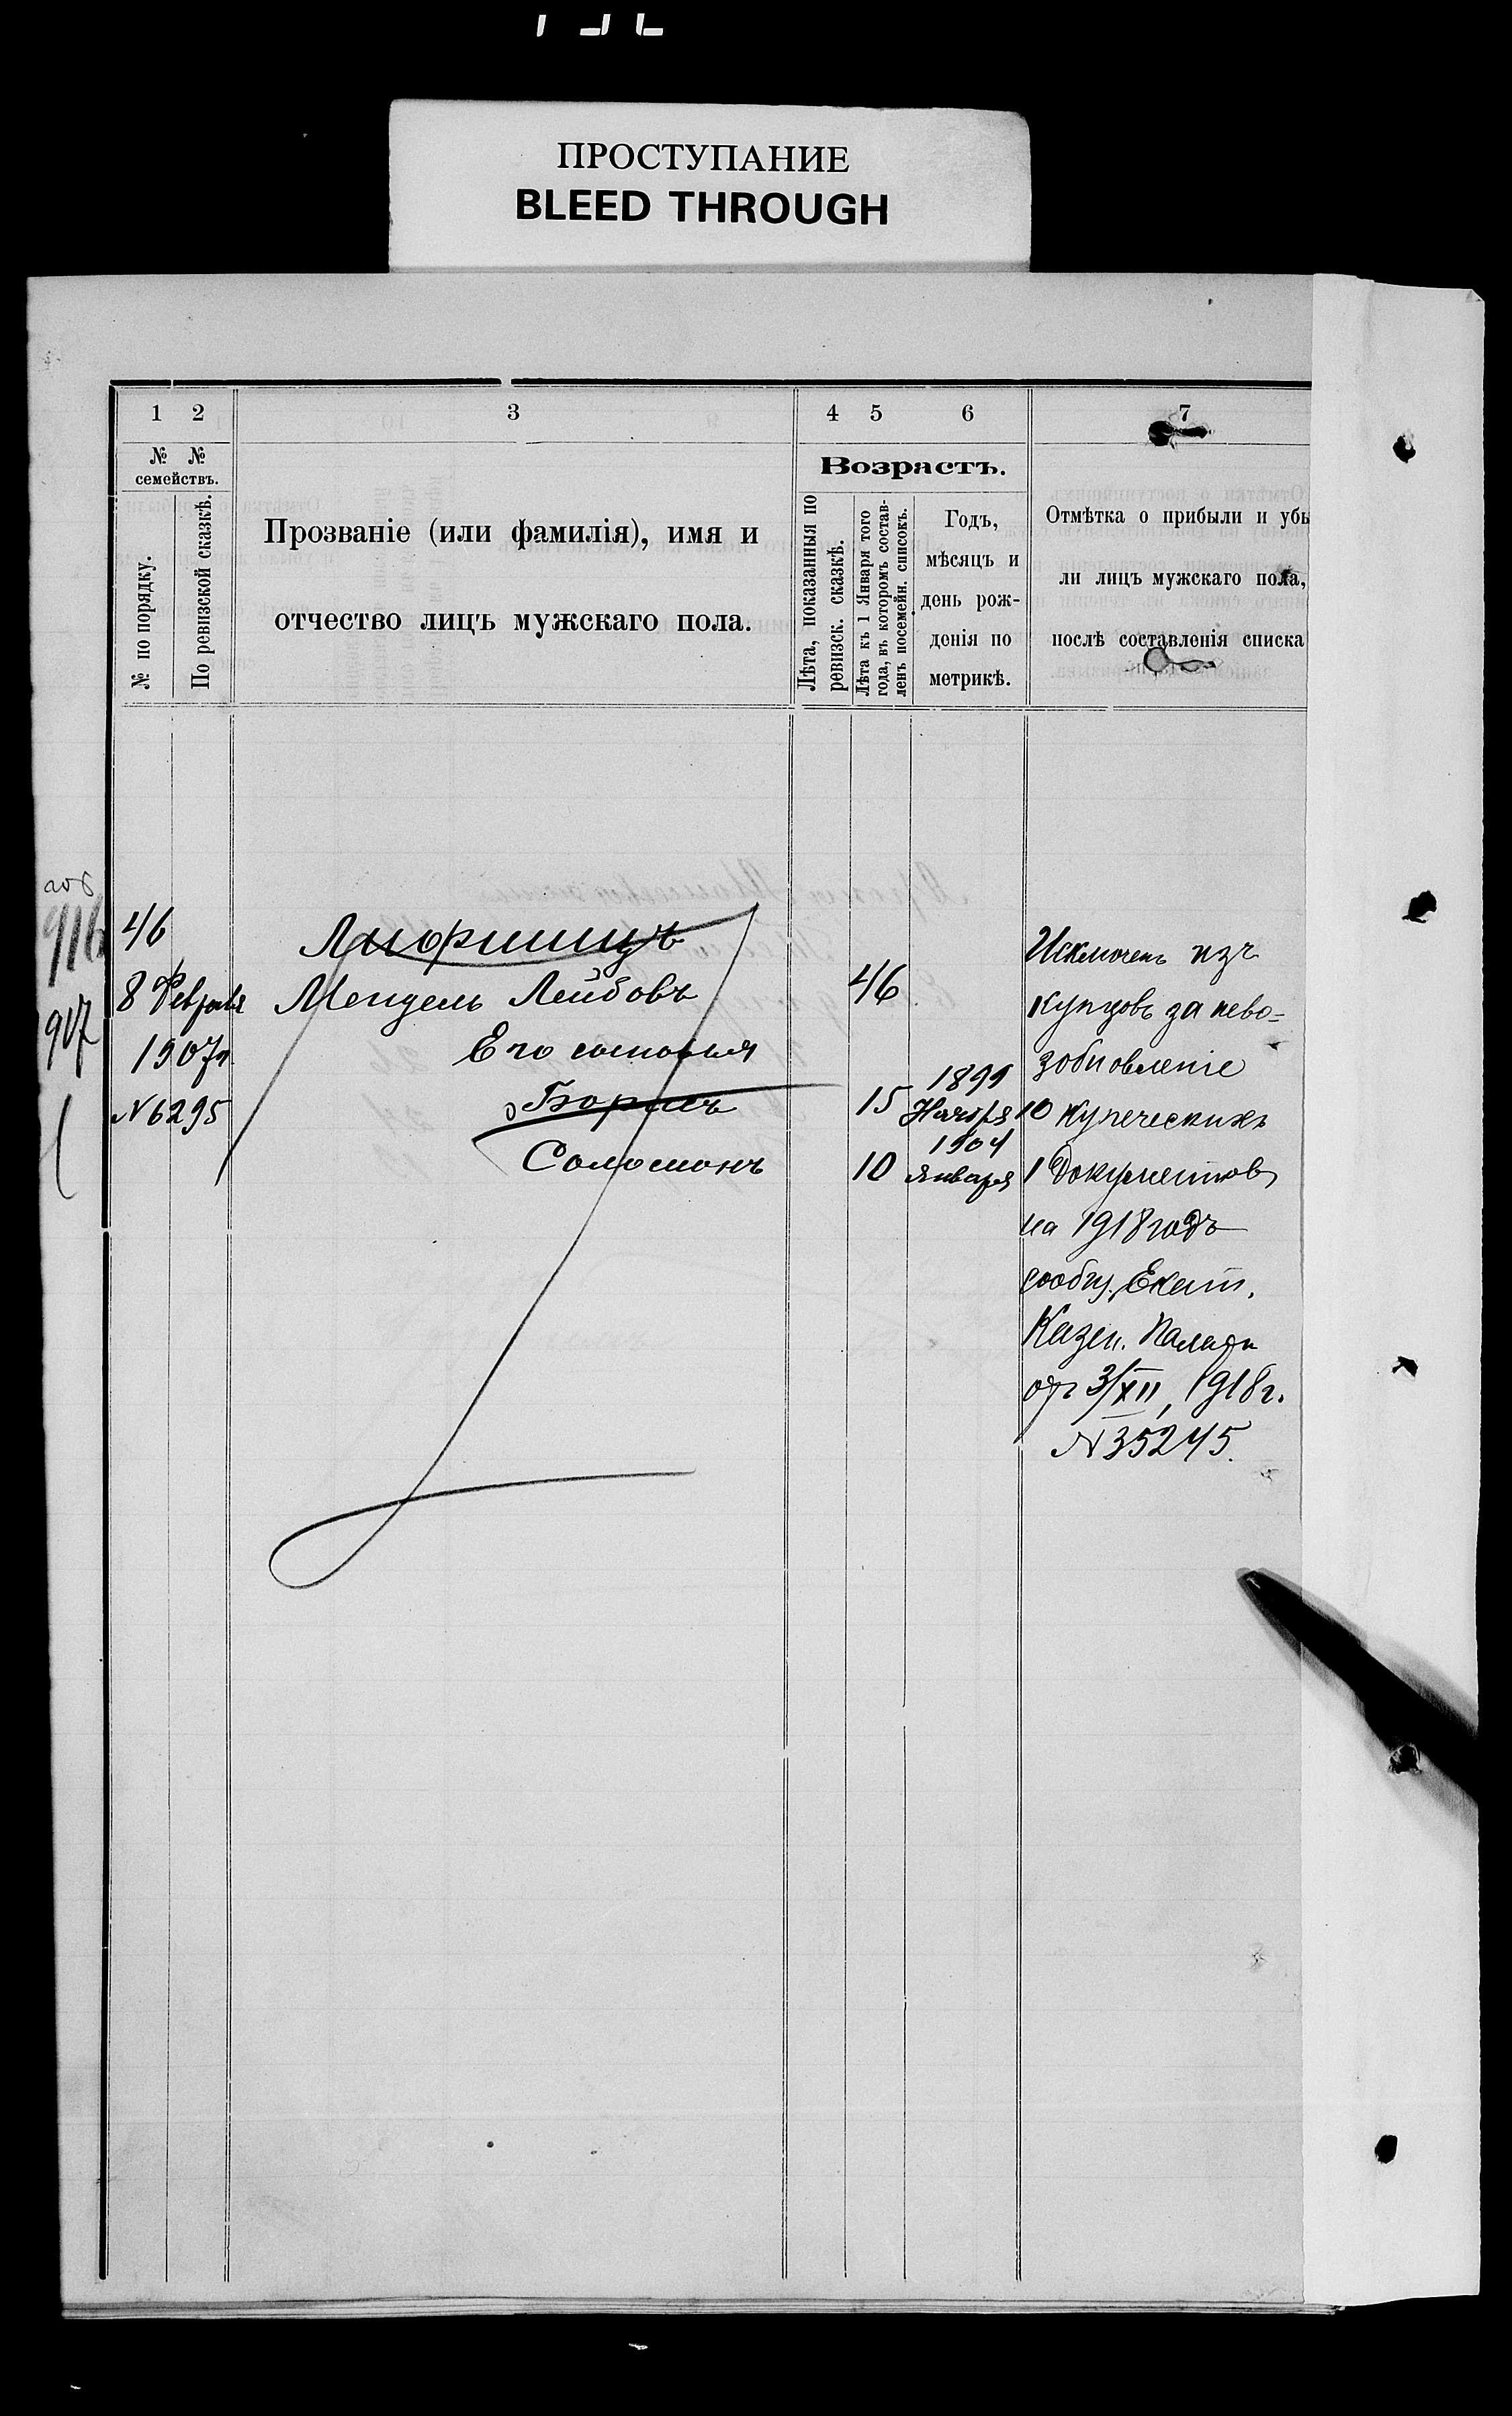 ПРОСТУПАНИЕ
BLEED THROUGH
1 2 3 4 5 6 7
№ № семействъ.
№ по порядку.
По ревизской сказкѣ.
Прозваніе (или фамилія), имя и
отчество лицъ мужскаго пола.
Возрастъ.
Лѣта, показанныя по
ревизск. сказкѣ.
Лѣта къ 1 Января того
года, въ которомъ состав-
ленъ посемейн. списокъ.
Годъ,
мѣсяцъ и
день рож-
денія по
метрикѣ.
Отмѣтка о прибыли и убы
ли лицъ мужскаго пола,
послѣ составленія списка
916
917
46
8 Февраля
1907г.
№6295
Мендель Лейбовъ 46
Его сыновья
Борисъ 15 1899 10
Соломонъ 10 1904 Января 1
Исключенъ изъ
купцовъ за нево-
зобновленіе
купеческихъ
документовъ
на 1918 годъ
сообщ. Екат.
Казен. Палаты
отъ 3/XII, 1918 г.
№35245.